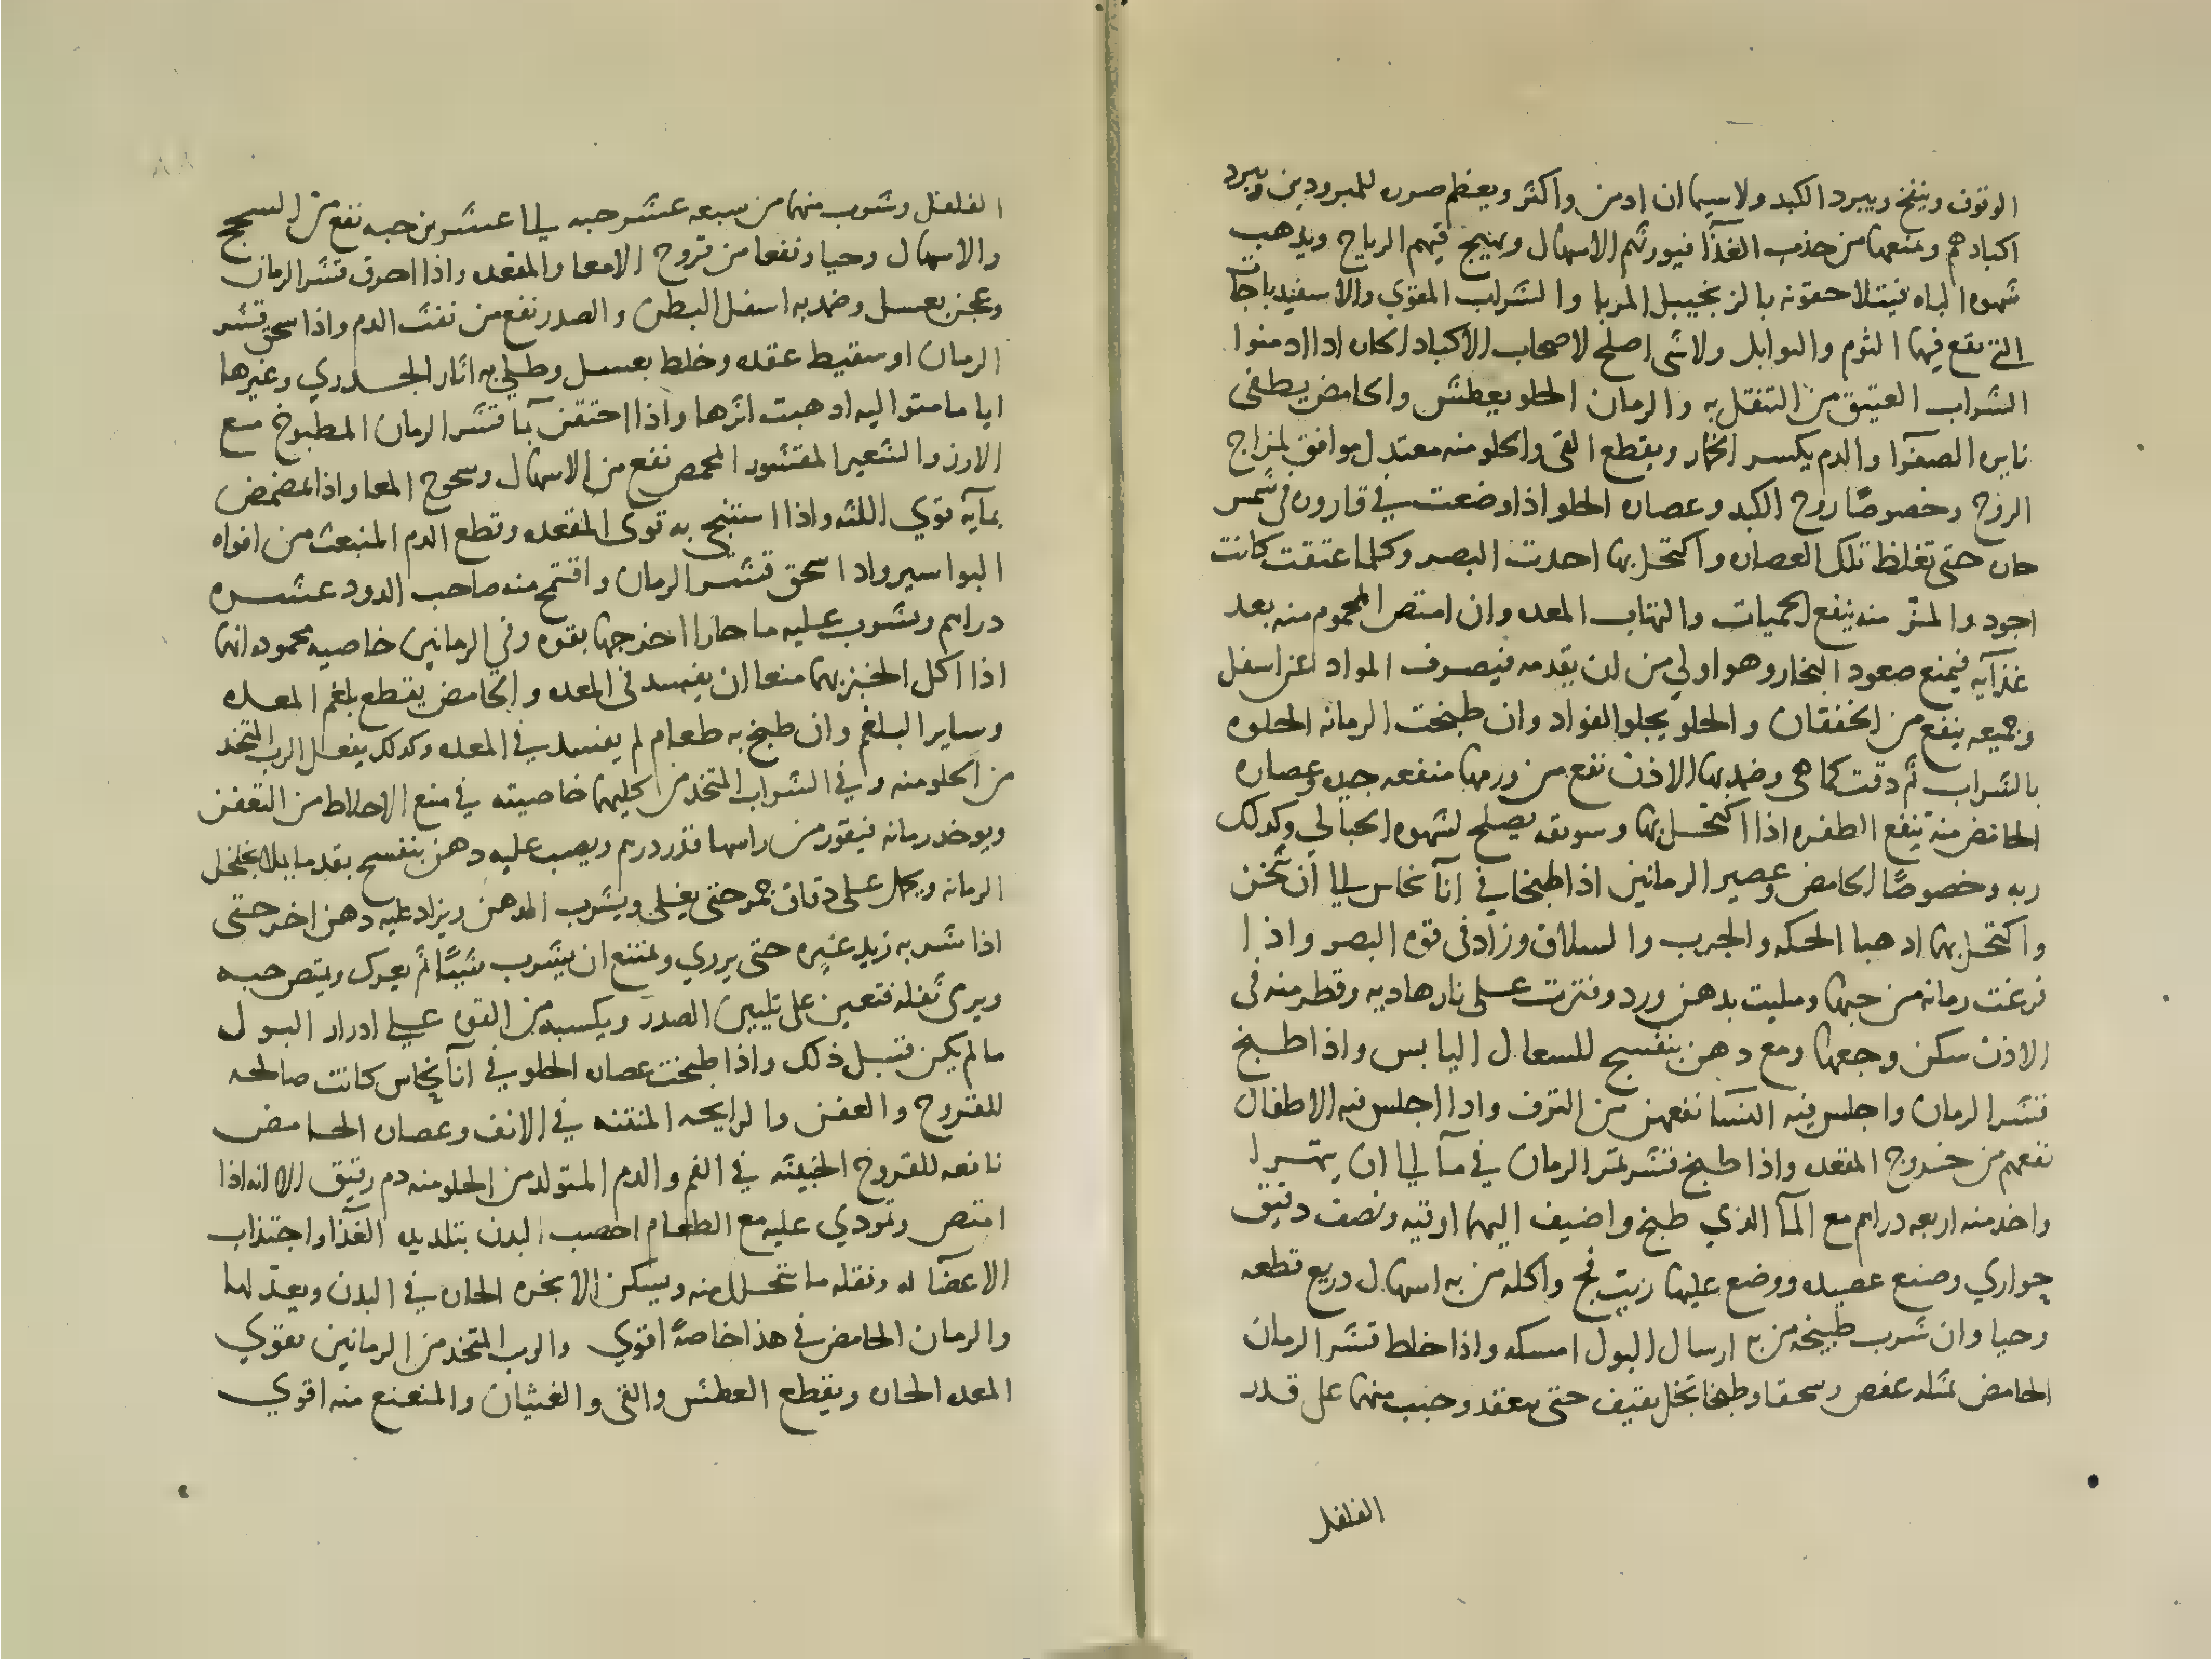 الوتون وينفخ ويبرد الكبد ولا سيما ان ادمن واكثر ويعظم صرره للمبرودين ويبرد
اكبادهم ويمنعها من جذب الغذآ فيورثهم الاسهال ويهيج فيهم الرياح ويذهب
شهوه الباه فيتلاحقونه بالزنجبيل المربا والشراب المقوي والاسفيدباجات
التي يقع فيها الثوم والتوابل ولا شي اصلح لاصحاب الاكباد الحاره اذا ادمنوا
الشراب العتيق من التنقل به والرمان الحلو يعطش والحامض يطفى
نايره الصفرا والدم يكسر الخمار ويقطع القى والحلو منه معتدل موافق لمزاج
الروح وخصوصًا روح الكبد وعصاره الحلو اذا وضعت في قاروره في شمس
حاره حتى تغلظ تلك العصاره واكتحل بها احدت البصر وكلما عتقت كانت
اجود والمز منه ينفع الحميات والتهاب المعده وان امتص المحموم منه بعد
غذآيه فيمنع صعود البخار وهو اولي من ان يقدمه فيصرف المواد عن اسفل
وجميعه ينفع من الخفقان والحلو يجلو الفواد وان طبخت الرمانه الحلوه
بالشراب ثم دقت كما هى وضمد بها الاذن نفع من ورمها منفعه جيده وعصاره
الحامض منه ينفع الظفره اذا اكتحل بها وسويقه يصلح لشهوه الحبالي وكذلك
ربه وخصوصًا الحامض وعصير الرمانين اذا طبخا في انآ نحاس الي ان ثخن
واكتحل بها اذهبا الحكه والجرب والسلاق وزاد فى قوه البصر واذا
فرغت رمانه من حبها ومليت بدهن ورد وفترت على نار هاديه وقطر منه فى
الاذن سكن وجعها ومع دهن بنفسج للسعال اليابس واذا طبخ
قشر الرمان واجلس فيه النسا نفعهن من النزف واذا اجلس فيه الاطفال
نفعهم من خروج المقعده واذا طبخ قشر ثمر الرمان في مآ الي ان يتهرا
واخذ منه اربعه دراهم مع المآ الذي طبخ واضيف اليها اوقيه ونصف دقيق
حواري وصنع عصيده ووضع عليها زيت فج واكله من به اسهال ذريع قطعه
وحيا وان شرب طبيخه من به ارسال البول امسكه واذا خلط قشر الرمان
الحامض بمثله عفص وسحقا وطبخا بخل ثقيف حتى ينعقد وحبب منها على قدر
الفلفل
الفلفل وشرب منها من سبعه عشر حبه الي عشرين حبه نفع من السحج
والاسهال وحيا ونفعا من قروح الامعا والمقعده واذا احرق قشر الرمان
وعجن بعسل وضمد به اسفل البطن والصدر نفع من نفث الدم واذا سحق قشر
الرمان او سقيط عقده وخلط بعسل وطلي به اثار الجدري وغيرها
اياما متواليه اذهبت اثرها واذا احتقن بمآ قشر الرمان المطبوخ مع
الارز والشعير المقشور المحمص نفع من الاسهال وسحوج المعا واذا تمضمض
بمآيه قوي اللثه واذا استنجي به قوى المقعده وقطع الدم المنبعث من افواه
البواسير واذا سحق قشر الرمان واقتمح منه صاحب الدود عشره
دراهم وشرب عليه ما حارا اخرجها بقوه وفي الرمانين خاصيه محموده انها
اذا اكل الخبز بها منعا ان يفسد فى المعده والحامض يقطع بلغم المعده
وساير البلغم وان طبخ به طعام لم يفسد في المعده وكذلك يفعل الرب المتخذ
من الحلو منه وفي الشراب المتخذ من كليهما خاصيته في منع الاخلاط من التعفن
ويوخذ رمانه فيقور من راسها قدر درهم ويصب عليه دهن بنفسج بقدر ما يملا تخلخل
الرمانه ويجعل على دقاق جمر حتى يغلى ويشرب الدهن ويزاد عليه دهن اخر حتى
اذا شربه زيد غيره حتى يرري ويمتنع ان يشرب شيًا ثم يعرك ويمتص حبه
ويرى ثفله فتعين على تليين الصدر ويكسبه من القوه علي ادرار البول
ما لم يكن قبل ذلك واذا طبخت عصاره الحلو في انآ نحاس كانت صالحه
للقروح والعفن والرايحه المنتنه في الانف وعصاره الحامض
نافعه للقروح الخبيثه في الفم والدم المتولد من الحلو منه دم رقيق الا انه اذا
امتص وتمودي عليه مع الطعام اخصب البدن بتلذيذه الغذا واجتذاب
الاعضآ له ونقله ما يتحلل منه ويسكن الابخره الحاره في البدن ويعدلها
والرمان الحامض في هذا خاصةً اقوي والرب المتخذ من الرمانين يقوي
المعده الحاره ويقطع العطش والقى والغثيان والمنعنع منه اقوي